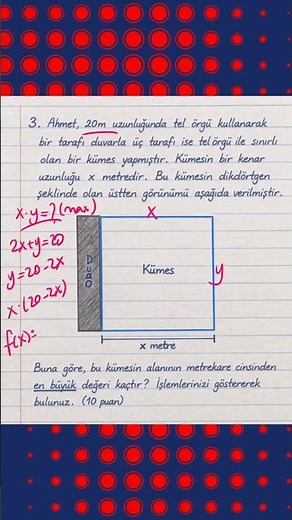 3. Ahmet, 20m uzunluğunda tel örgü kullanarak
bir tarafı duvarla üç tarafı ise tel örgü ile sınırlı
olan bir kümes yapmıştır. Kümesin bir kenar
uzunluğu x metredir. Bu kümesin dikdörtgen
şeklinde olan üstten görünümü aşağıda verilmiştir.
x.y=? (max)
x
2x+y=20
y=20-2x
x.(20-2x)
f(x)=
Duvar
Kümes
y
x metre
Buna göre, bu kümesin alanının metrekare cinsinden
en büyük değeri kaçtır? İşlemlerinizi göstererek
bulunuz. (10 puan)